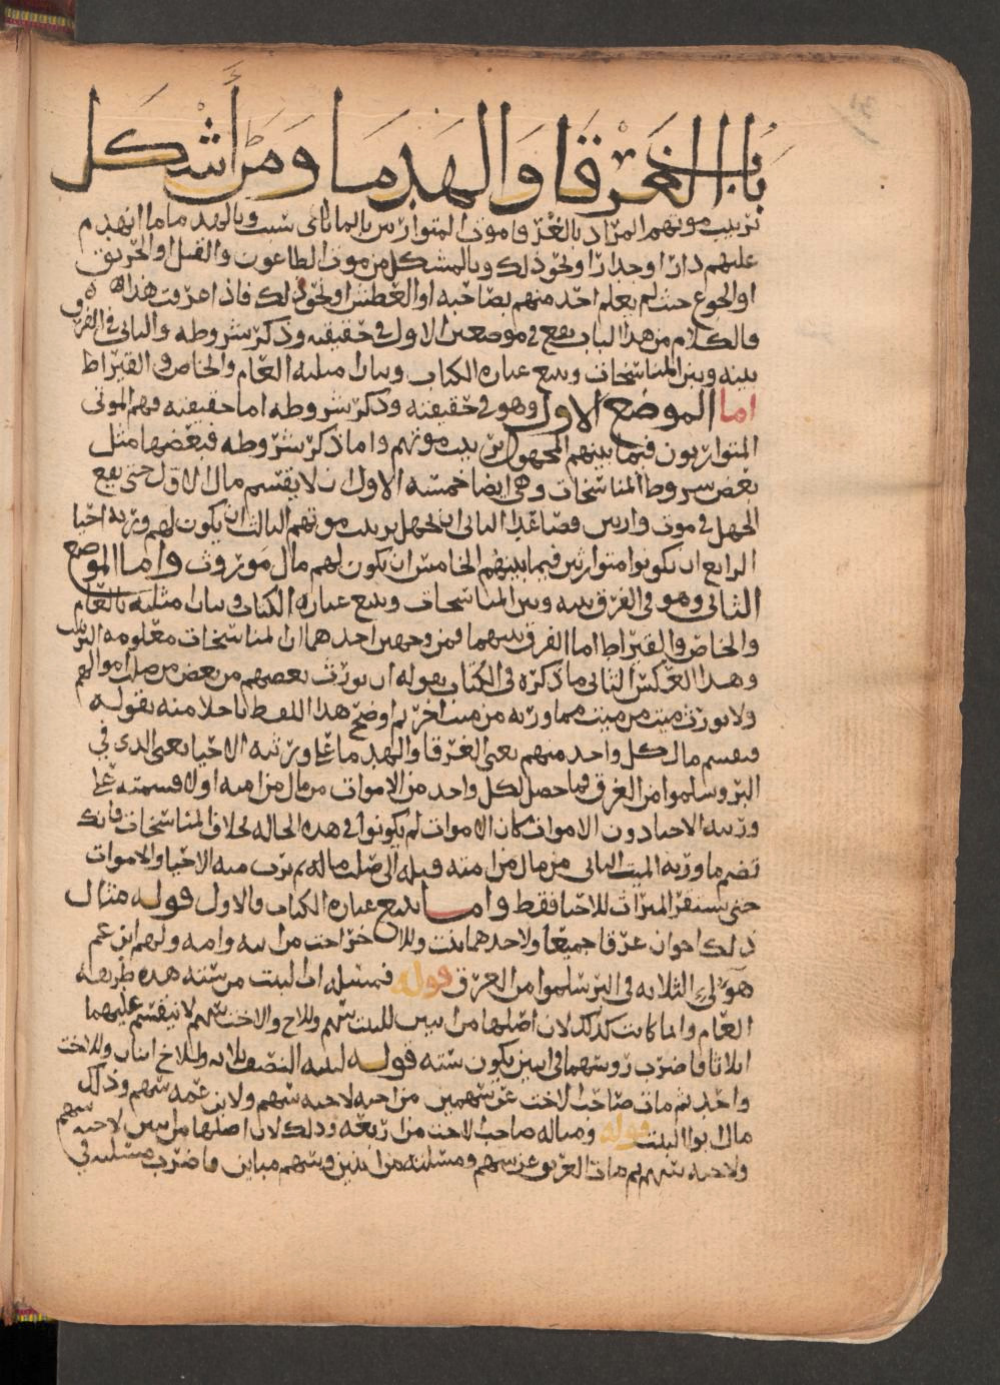 باب الغرقا والهدما ومن أشكل
ترتيب موتهم المراد بالغرقا موت المتوارثين بالماء باي سبب وبالهدما ما انهدم
عليهم دارًا او جدارًا او نحو ذلك وبالمشكل من موت الطاعون والقتل او الحريق
او الجوع حيث لم يعلم احد منهم بصاحبه او العطش او نحو ذلك فاذا عرفت هذا
فالكلام من هذا الباب يقع في موضعين الاول في حقيقته وذكر شروطه والثاني في الفرق
بينه وبين المناسخات وتتبع عبارة الكتاب وبيان مثليه العام والخاص والقيراط
اما الموضع الاول وهو في حقيقته وذكر شروطه اما حقيقته فهم الموتى
المتوارثون فيما بينهم المجهول ترتيب موتهم واما ذكر شروطه فبعضها مثل
بعض شروط المناسخات وهي ايضا خمسة الاول ان لا يقسم مال الاول حتى يقع
الجهل في موت وارثين فصاعدًا الثاني ان يجهل ترتيب موتهم الثالث ان يكون لهم ورثة احيا
الرابع ان يكونوا متوارثين فيما بينهم الخامس ان يكون لهم مال موروث واما الموضع
الثاني وهو في الفرق بينه وبين المناسخات وتتبع عبارة الكتاب وبيان مثليه بالعام
والخاص والقيراط اما الفرق بينهما فمن وجهين احدهما ان المناسخات معلومة الترتيب
وهذا العكس الثاني ما ذكره في الكتاب بقوله ان يورث بعضهم من بعض من صلب اموالهم
ولا يورث ميت من ميت مما ورثه من ميت اخر ثم اوضح هذا اللفظ باجلا منه بقوله
فيقسم مال كل واحد منهم يعني الغرقا والهدما على ورثته الاحيا يعني الذي في
البر وسلموا من الغرق فما حصل لكل واحد من الاموات من مال من امته اولا قسمته على
ورثته الاحيا دون الاموات كان الاموات لم يكونوا في هذه الحاله بخلاف المناسخات فانك
تضم ما ورثه الميت الثاني من مال من امته قبله الى صلب ماله ثم ترث منه الاحيا والاموات
حتى يستقر الميراث للاحيا فقط واما تتبع عبارة الكتاب فالاول قوله مثال
ذلك اخوان غرقا جميعًا ولاحدهما بنت وللاخر اخت من ابيه وامه ولهم ابن عم
هؤلى الثلاثه في البر سلموا من الغرق قوله فمسئله اب البنت من سته هذه طريقه
العام وانما كانت كذلك لان اصلها من اثنين للبنت سهم وللاخ والاخت سهم لا ينقسم عليهما
اثلاثا فاضرب روسهما في اثنين يكون سته قوله لبنته النصف ثلاثه وللاخ اثنان وللاخت
واحد ثم مات صاحب الاخت عن سهمين من اخيه لاخته سهم ولابن عمه سهم وذلك
مال ابو البنت قوله ومساله صاحب الاخت من اربعه وذلك لان اصلها من اثنين لاخته سهم
ولاخيه سهم ثم مات الغريق عن سهم ومسئلته من اثنين وسهم مباين فاضرب مسئلته في